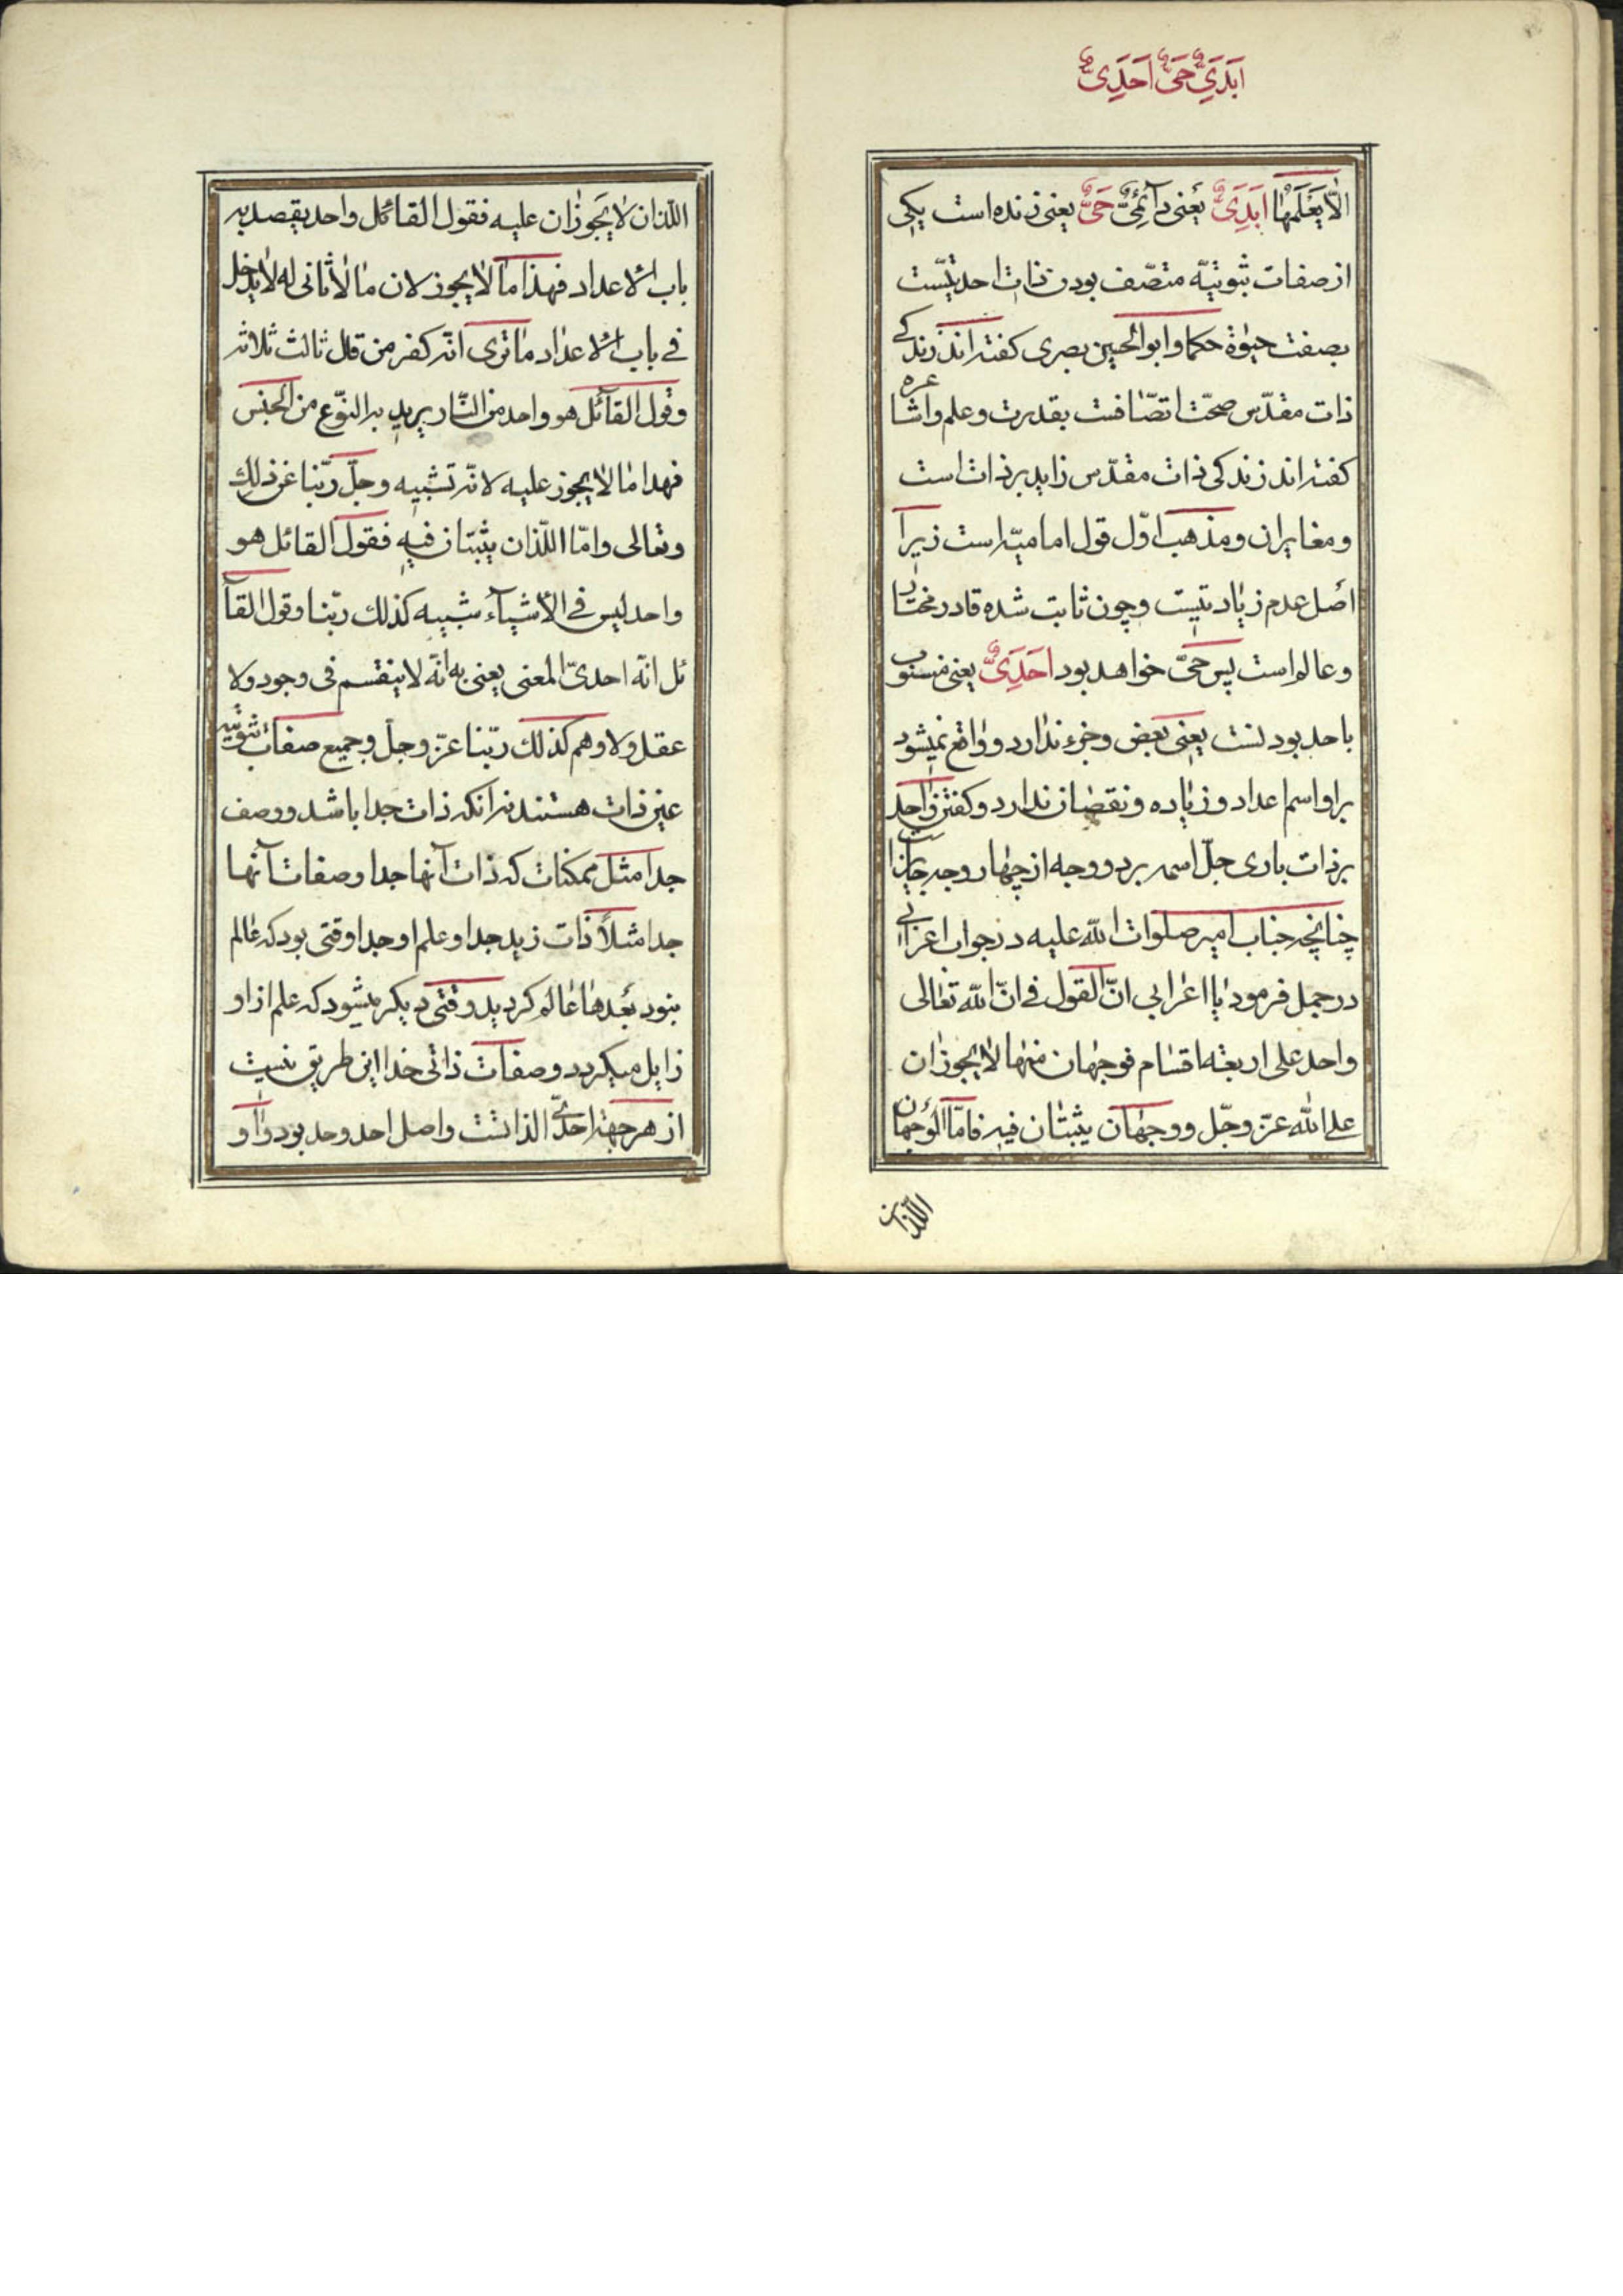 اَبَدَیٌّ حَیٌّ اَحَدِیٌّ
الّا یَعْلَمُهٰا اَبَدَیٌّ یعنی دآئمیٌّ حَیٌّ یعنی زنده است یکی
از صفات ثبوتیّه متّصف بودن ذات احدیّتست
بصفت حیوٰة حکما و ابوالحسین بصری کفته اند زندکی
ذات مقدّس صحّت اتصّافست بقدرت و علم و اشاعره
کفته اند زندکی ذات مقدّس زاید بر ذات است
و مغایر ان و مذهب اوّل قول امامیّه است زیرا
اصل عدم زیادتیست و چون ثابت شده قادر مختار
و عالم است پس حیّ خواهد بود اَحَدِیٌّ یعنی منسوب
باحد بودنست یعنی بعض و جزء ندارد و واقع نمیشود
بر او اسم اعداد و زیاده و نقصان ندارد و کفتن واحد
بر ذات باری جلّ اسمه بر دو وجه از چهار وجه جایز است
چنانچه جناب امیر صلوات الله علیه در جواب اعرابی
در جمل فرمود یا اعرابی انّ القول فی انّ الله تعالی
واحد علی اربعة اقسام فوجهان منها لا یجوزان
علی الله عزّ وجلّ و وجهان یثبتان فیه فامّا الوجهان
اللّذان
اللّذان لا یَجوزان علیه فقول القائل واحد یقصد به
باب الاعداد فهذا ما لا یجوز لان ما لا ثانی له لا یدخل
فی باب الاعداد ما تری انّه کفر من قال ثالث ثلاثه
و قول القآئل هو واحد من النّاس یرید به النوّع من الجنس
فهذا ما لا یجوز علیه لانّه تشبیه و جلّ ربّنا عن ذلک
و تعالی و امّا اللّذان یثبتان فیه فقول القائل هو
واحد لیس فی الاشیآء شبیه کذلک ربّنا و قول القآ
ئل انّه احدیّ المعنی یعنی به انّه لا ینقسم فی وجود و لا
عقل و لا وهم کذلک ربّنا عزّ و جلّ و جمیع صفات ثبوتیّه
عین ذات هستند نه انکه ذات جدا باشد و وصف
جدا مثل ممکنات که ذات آنها جدا و صفات آنها
جدا مثلاً ذات زید جدا و علم او جدا وقتی بود که عالم
نبود بعدها عالم کردید و وقتی دیکر میشود که علم از او
زایل میکردد و صفات ذاتی خدا این طریق نیست
از هر جهة احدیّ الذاتست و اصل احد وحد بود واو